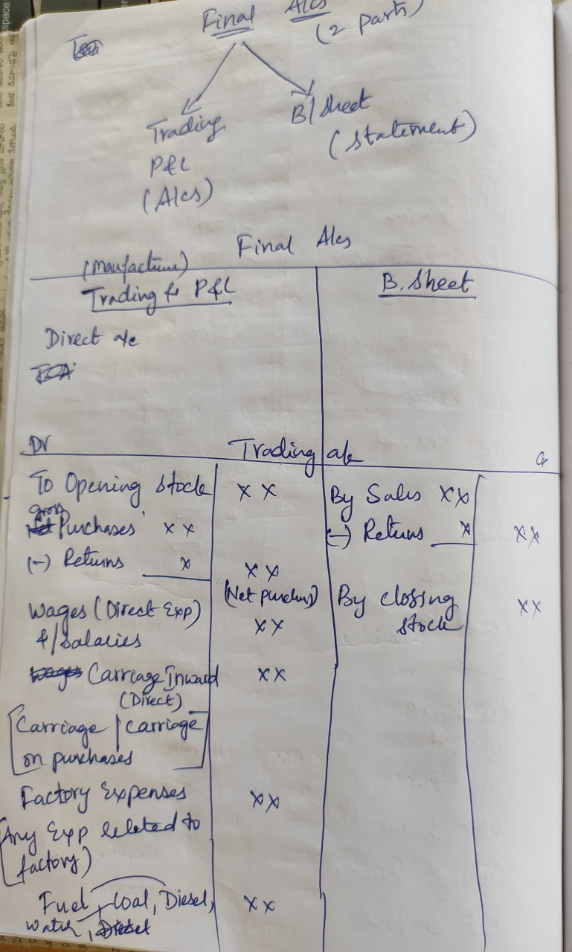 Final A/cs
(2 parts)
Trading
P&L
(A/cs)
B/Sheet
(Statement)
Final A/cs
(Maufacturing)
Trading & P&L
B. Sheet
Direct a/c
Dr Trading a/c Cr
To Opening Stock x x By Sales x x
gross
Purchases x x (-) Returns x x x
(-) Returns x x x
(Net purchases) By closing stock x x
Wages (Direct Exp) x x
&/Salaries
Carriage Inward x x
(Direct)
[Carriage / carriage
on purchases]
Factory Expenses x x
(Any Exp related to
factory)
Fuel, Coal, Diesel, x x
water,